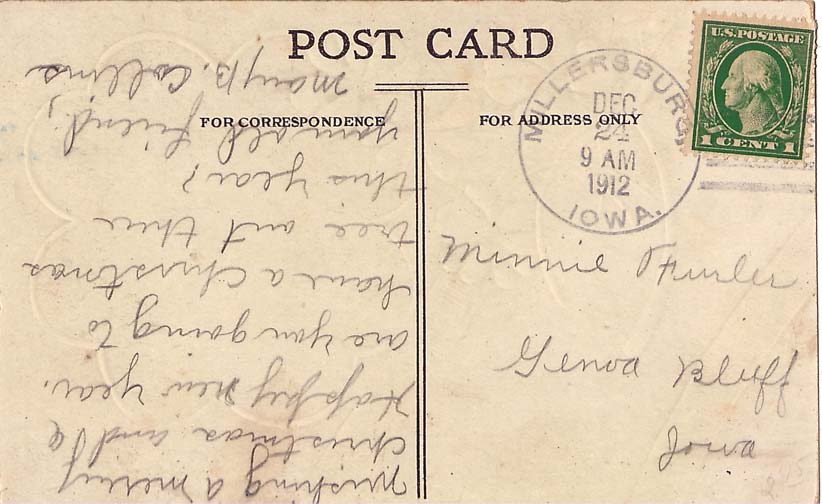 POST CARD
FOR CORRESPONDENCE
FOR ADDRESS ONLY
MILLERSBURG
DEC
24
9 AM
1912
IOWA.
U.S. POSTAGE
1 CENT 1
Minnie Furler
Genoa Bluff
Iowa
Wishing a merry
Christmas and a
Happy new year.
are you going to
have a Christmas
tree
this year?
your old friend,
Mary B. Collins